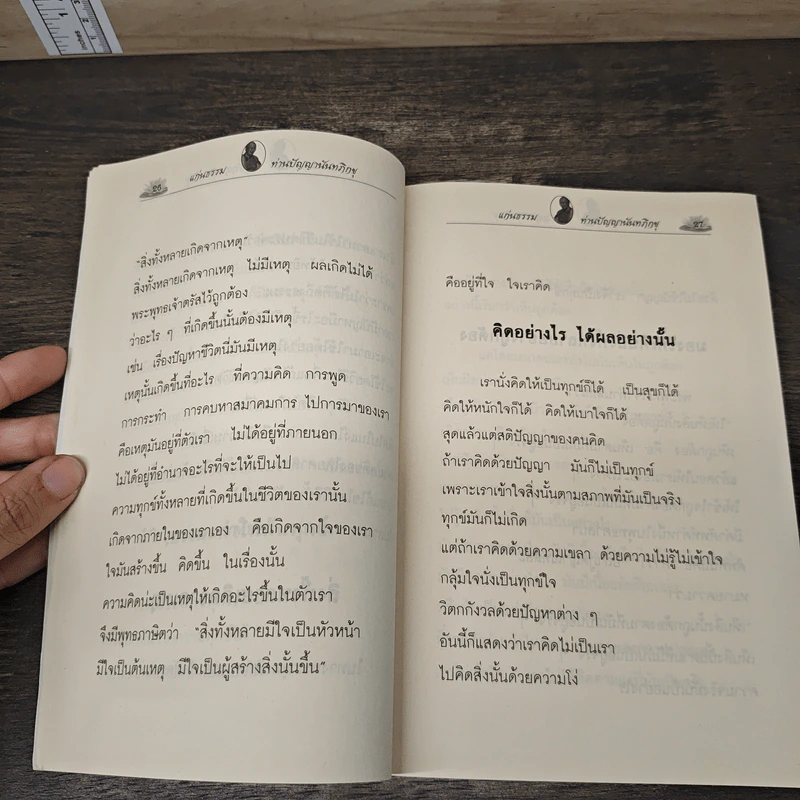 inches
1
2
3
26
แก่นธรรม ท่านปัญญานันทภิกขุ
"สิ่งทั้งหลายเกิดจากเหตุ"
สิ่งทั้งหลายเกิดจากเหตุ ไม่มีเหตุ ผลเกิดไม่ได้
พระพุทธเจ้าตรัสไว้ถูกต้อง
ว่าอะไร ๆ ที่เกิดขึ้นนั้นต้องมีเหตุ
เช่น เรื่องปัญหาชีวิตนี่มันมีเหตุ
เหตุนั้นเกิดขึ้นที่อะไร ที่ความคิด การพูด
การกระทำ การคบหาสมาคมการ ไปการมาของเรา
คือเหตุมันอยู่ที่ตัวเรา ไม่ได้อยู่ที่ภายนอก
ไม่ได้อยู่ที่อำนาจอะไรที่จะให้เป็นไป
ความทุกข์ทั้งหลายที่เกิดขึ้นในชีวิตของเรานั้น
เกิดจากภายในของเราเอง คือเกิดจากใจของเรา
ใจมันสร้างขึ้น คิดขึ้น ในเรื่องนั้น
ความคิดน่ะเป็นเหตุให้เกิดอะไรขึ้นในตัวเรา
จึงมีพุทธภาษิตว่า "สิ่งทั้งหลายมีใจเป็นหัวหน้า
มีใจเป็นต้นเหตุ มีใจเป็นผู้สร้างสิ่งนั้นขึ้น"
แก่นธรรม ท่านปัญญานันทภิกขุ
27
คืออยู่ที่ใจ ใจเราคิด
คิดอย่างไร ได้ผลอย่างนั้น
เรานั่งคิดให้เป็นทุกข์ก็ได้ เป็นสุขก็ได้
คิดให้หนักใจก็ได้ คิดให้เบาใจก็ได้
สุดแล้วแต่สติปัญญาของคนคิด
ถ้าเราคิดด้วยปัญญา มันก็ไม่เป็นทุกข์
เพราะเราเข้าใจสิ่งนั้นตามสภาพที่มันเป็นจริง
ทุกข์มันก็ไม่เกิด
แต่ถ้าเราคิดด้วยความเขลา ด้วยความไม่รู้ไม่เข้าใจ
กลุ้มใจนั่งเป็นทุกข์ใจ
วิตกกังวลด้วยปัญหาต่าง ๆ
อันนี้ก็แสดงว่าเราคิดไม่เป็นเรา
ไปคิดสิ่งนั้นด้วยความโง่